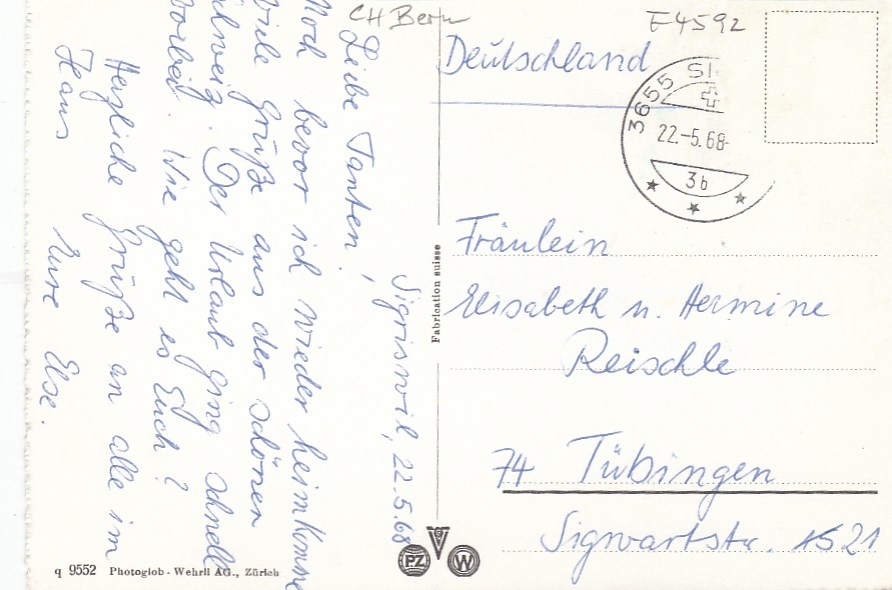 CH Bern
E4592
Sigriswil, 22.5.68
Liebe Tanten!
Noch bevor ich wieder heimkomme
viele Grüße aus der schönen
Schweiz. Der Urlaub ging schnell
vorbei. Wie geht es Euch?
Herzliche Grüße an alle im
Haus Eure Else.
Deutschland
3655 SI
22.-5.68-
3b
Fräulein
Elisabeth u. Hermine
Reischle
74 Tübingen
Sigwartstr. 21
Fabrication suisse
PZ
W
q 9552 Photoglob - Wehrli AG., Zürich